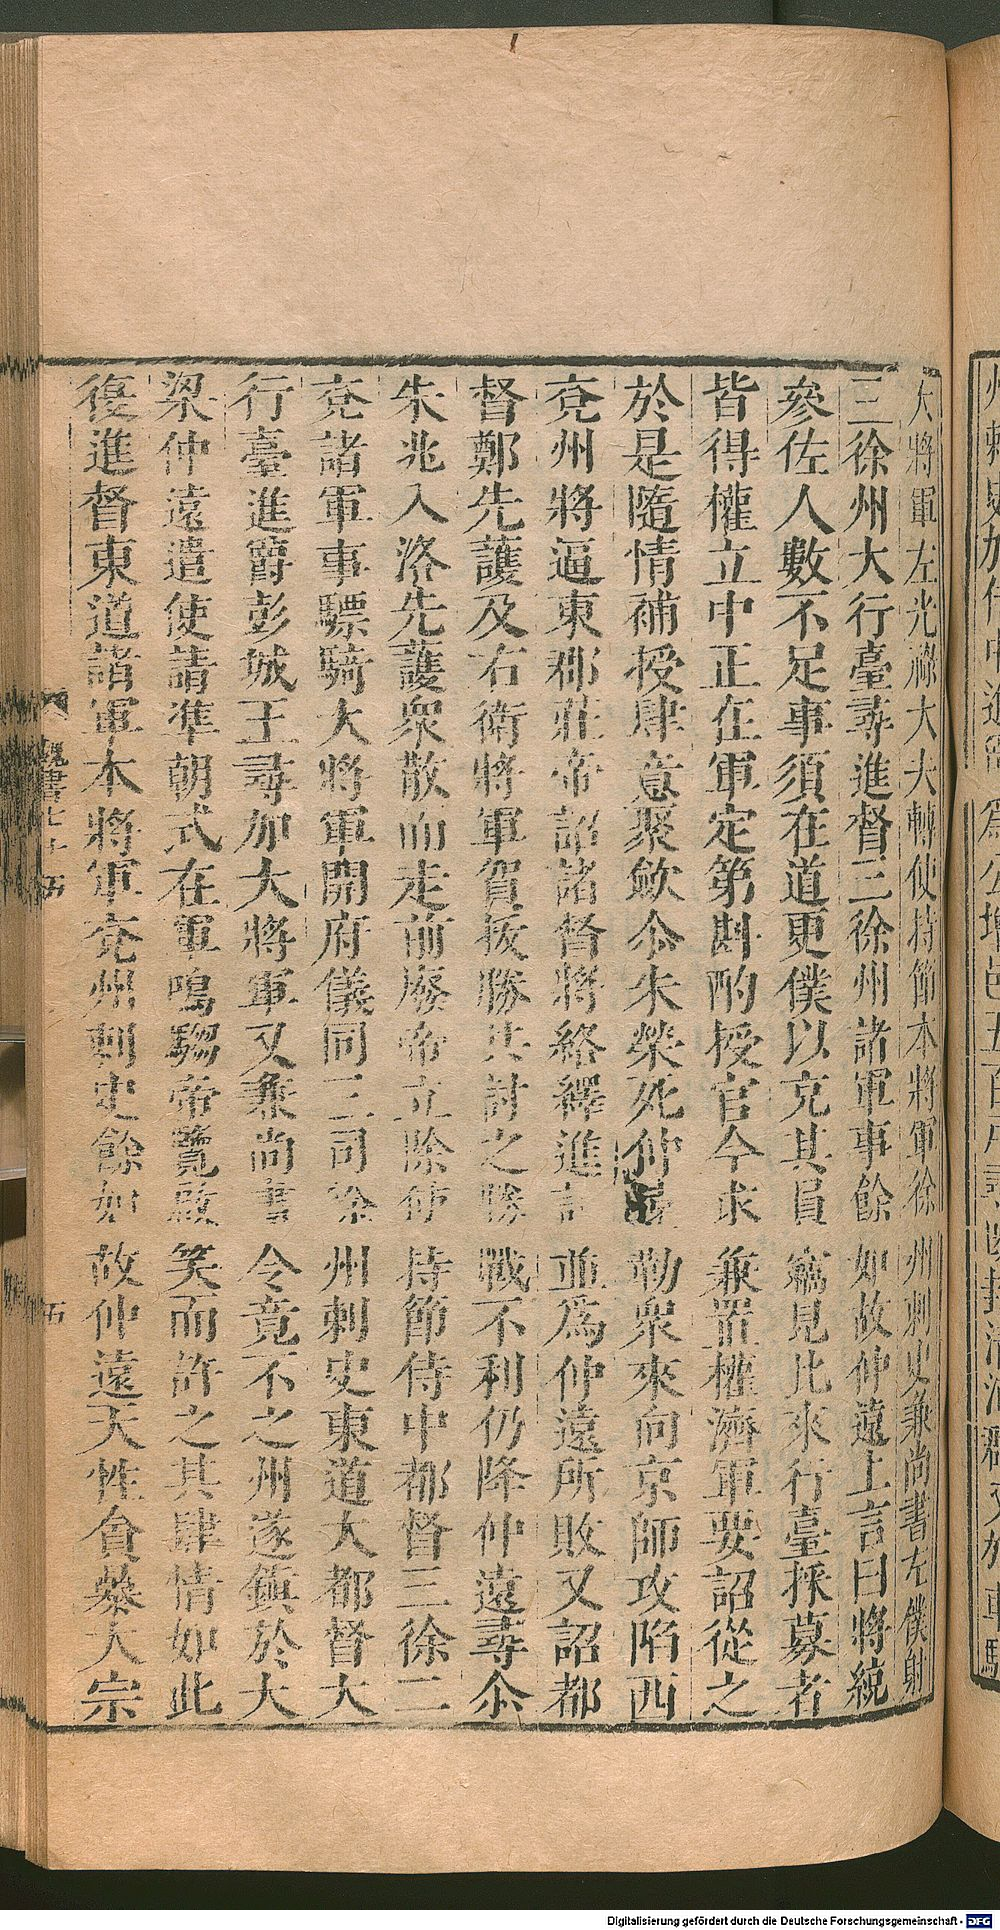 大將軍左光祿大夫轉使持節本將軍徐州刺史兼尚書左僕射
三徐州大行臺尋進督三徐州諸軍事餘如故仲遠上言曰將統
參佐人數不足事須在道更僕以充其員竊見比來行臺採募者
皆得權立中正在軍定第斟酌授官今求兼置權濟軍要詔從之
於是隨情補授肆意聚歛尒朱榮死仲遠勒衆來向京師攻陷西
兗州將逼東郡莊帝詔諸督將絡繹進討並爲仲遠所敗又詔都
督鄭先護及右衛將軍賀拔勝共討之勝戰不利仍降仲遠尋尒
朱兆入洛先護衆散而走前廢帝立除使持節侍中都督三徐二
兗諸軍事驃騎大將軍開府儀同三司徐州刺史東道大都督大
行臺進爵彭城王尋加大將軍又兼尚書令竟不之州遂鎮於大
梁仲遠遣使請準朝式在軍鳴騶帝覽啟笑而許之其肆情如此
復進督東道諸軍本將軍兗州刺史餘如故仲遠天性貪暴大宗
魏書七十五
五
Digitalisierung gefördert durch die Deutsche Forschungsgemeinschaft - DFG